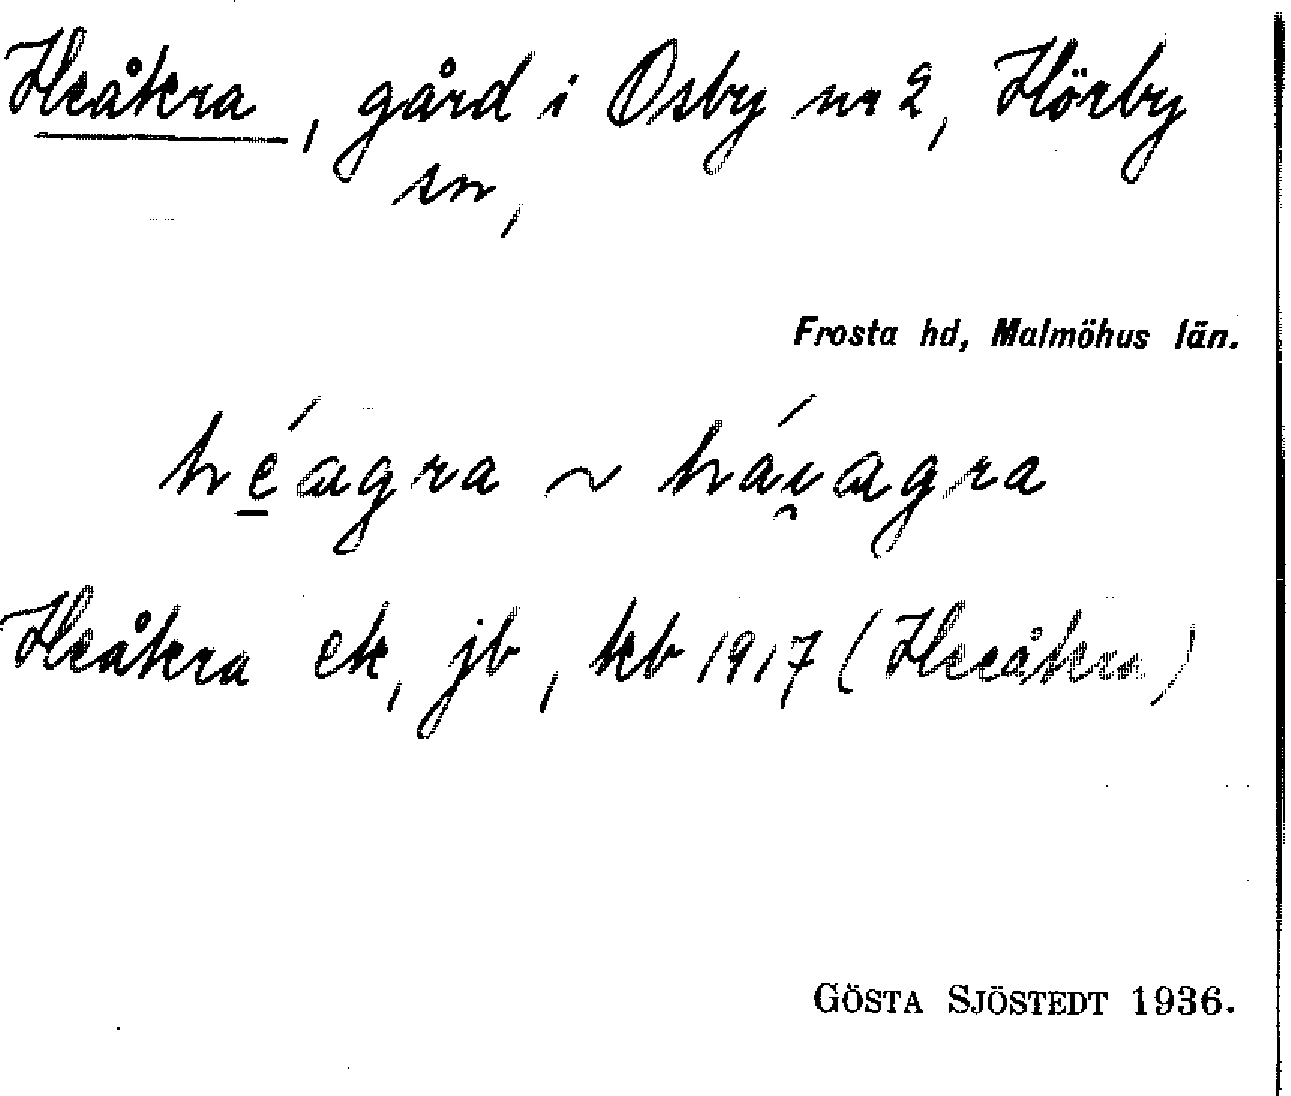 Heåkra, gård i Osby nr 2, Hörby
sn,
Frosta hd, Malmöhus län.
hé̲agra ~ hái̯agra
Heåkra ek, jb, kb 1917 (Heeåkra)
GÖSTA SJÖSTEDT 1936.